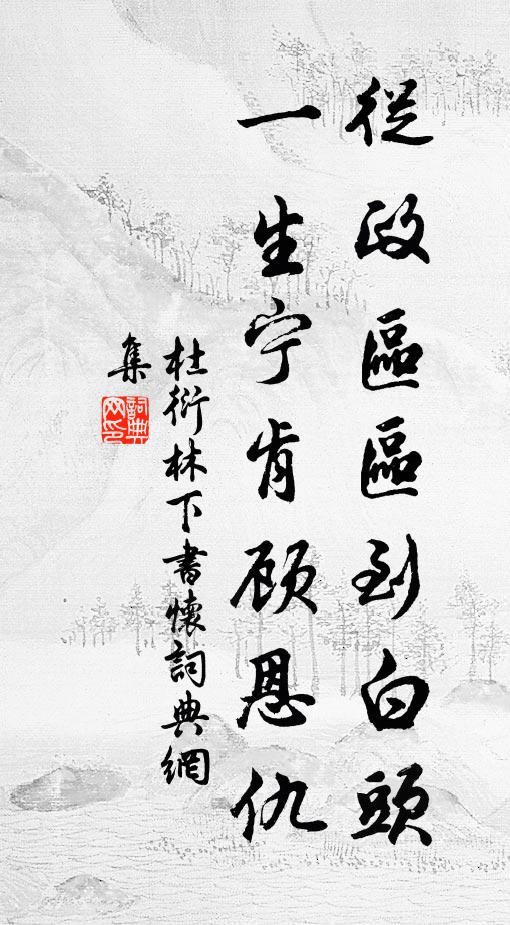 從政區區到白頭
一生宁肯顧恩仇
杜衍林下書懷詞典網
集
詞典
网印